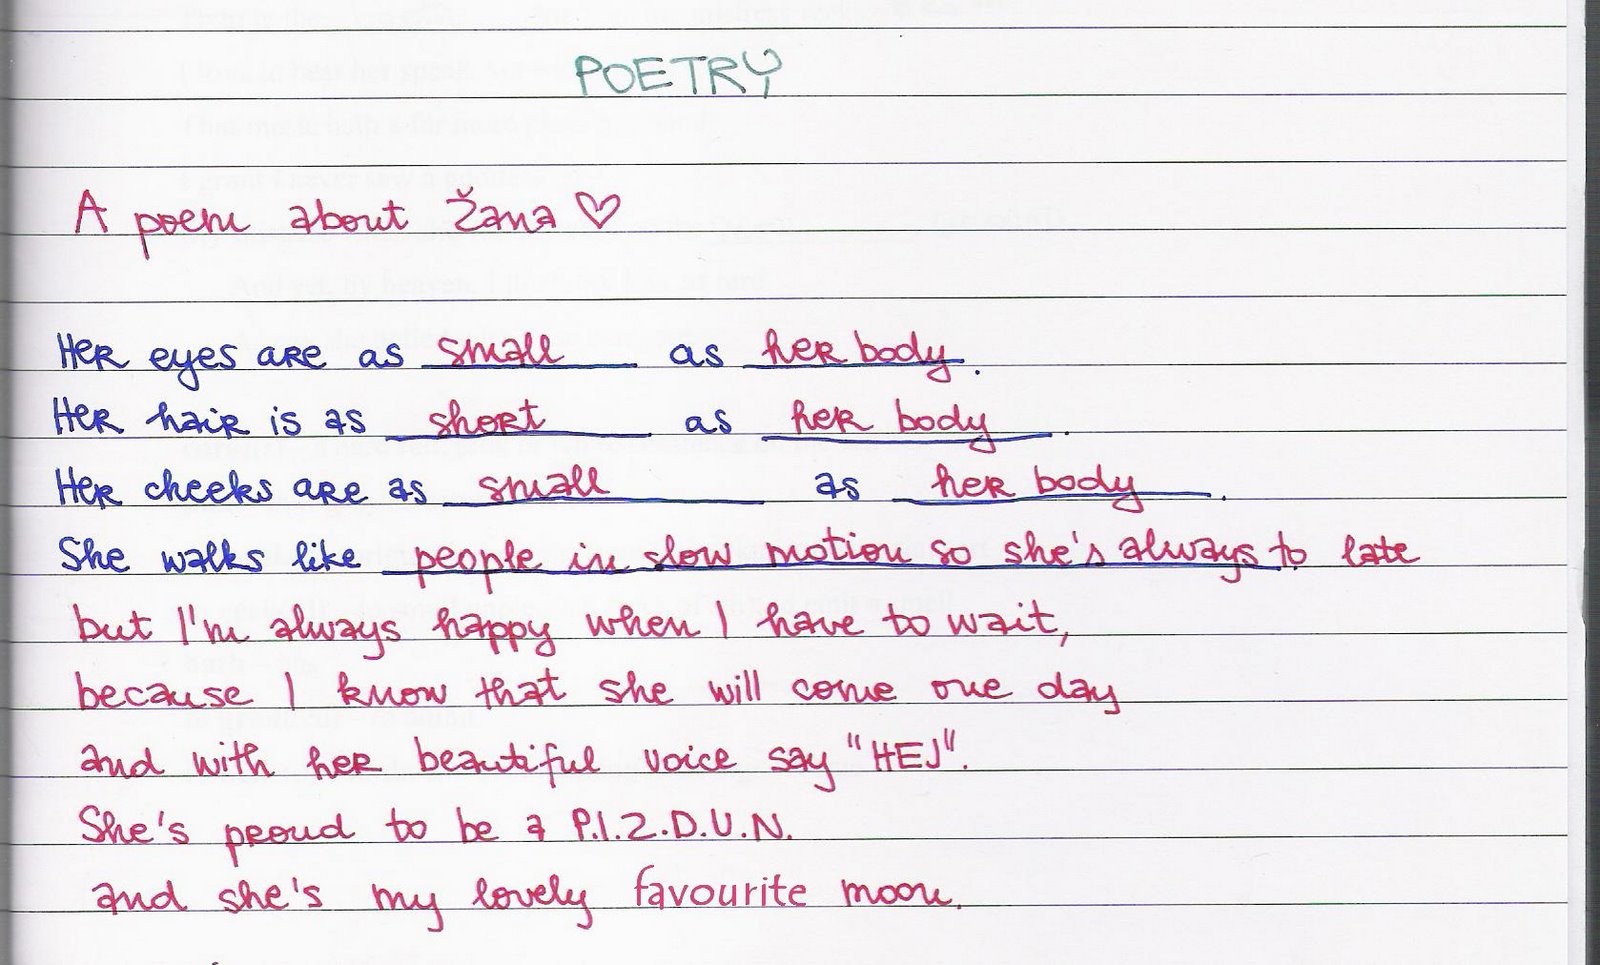 POETRY
A poem about Žana ♡
Her eyes are as small as her body.
Her hair is as short as her body.
Her cheeks are as small as her body.
She walks like people in slow motion so she's always to late
but I'm always happy when I have to wait,
because I know that she will come one day
and with her beautiful voice say "HEJ".
She's proud to be a P.I.Z.D.U.N.
and she's my lovely favourite moon.